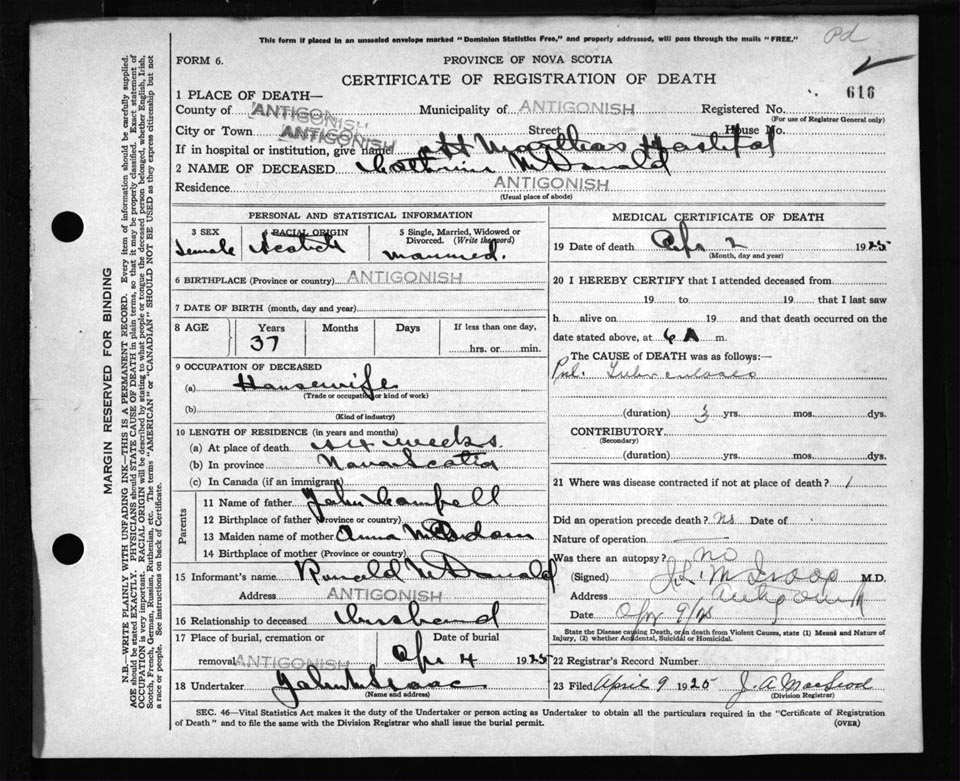 This form if placed in an unsealed envelope marked "Dominion Statistics Free," and properly addressed, will pass through the mails "FREE."
Pd
FORM 6.
PROVINCE OF NOVA SCOTIA
CERTIFICATE OF REGISTRATION OF DEATH
616
1 PLACE OF DEATH—
County of ANTIGONISH Municipality of ANTIGONISH Registered No.
(For use of Registrar General only)
City or Town ANTIGONISH Street House No.
If in hospital or institution, give name St Marthas Hospital
2 NAME OF DECEASED Catherine McDonald
Residence ANTIGONISH
(Usual place of abode)
PERSONAL AND STATISTICAL INFORMATION
3 SEX 4 RACIAL ORIGIN 5 Single, Married, Widowed or Divorced. (Write the word)
Female Scotch Married.
6 BIRTHPLACE (Province or country) ANTIGONISH
7 DATE OF BIRTH (month, day and year)
8 AGE Years Months Days If less than one day,
37 hrs. or min.
9 OCCUPATION OF DECEASED
(a) Housewife
(Trade or occupation or kind of work)
(b)
(Kind of industry)
10 LENGTH OF RESIDENCE (in years and months)
(a) At place of death weeks.
(b) In province Nova Scotia
(c) In Canada (if an immigrant)
Parents
11 Name of father John Campell
12 Birthplace of father (Province or country)
13 Maiden name of mother Anna McAdam
14 Birthplace of mother (Province or country)
15 Informant's name Ronald McDonald
Address ANTIGONISH
16 Relationship to deceased Husband
17 Place of burial, cremation or Date of burial
removal ANTIGONISH Apr 4 1925
18 Undertaker John McIsaac
(Name and address)
MEDICAL CERTIFICATE OF DEATH
19 Date of death Apr 2 1925
(Month, day and year)
20 I HEREBY CERTIFY that I attended deceased from
19 to 19 that I last saw
h alive on 19 and that death occurred on
date stated above, at 6 A m.
The CAUSE of DEATH was as follows:—
Pul. Tuberculosis
(duration) 3 yrs. mos. dys.
CONTRIBUTORY
(Secondary)
(duration) yrs. mos. dys.
21 Where was disease contracted if not at place of death?
Did an operation precede death? No Date of
Nature of operation
Was there an autopsy? no
(Signed) M.D.
Address Antigonish
Date Apr 9/25
State the Disease causing Death, or in death from Violent Causes, state (1) Means and Nature of Injury, (2) whether Accidental, Suicidal or Homicidal.
22 Registrar's Record Number
23 Filed April 9 1925 J. A. MacLeod
(Division Registrar)
SEC. 46—Vital Statistics Act makes it the duty of the Undertaker or person acting as Undertaker to obtain all the particulars required in the "Certificate of Registration
of Death" and to file the same with the Division Registrar who shall issue the burial permit.
(OVER)
MARGIN RESERVED FOR BINDING
N.B.—WRITE PLAINLY WITH UNFADING INK—THIS IS A PERMANENT RECORD. Every item of information should be carefully supplied.
AGE should be stated EXACTLY. PHYSICIANS should STATE CAUSE OF DEATH in plain terms, so that it may be properly classified. Exact statement of
OCCUPATION is very important. RACIAL ORIGIN will be described by stating to what people or tongue the deceased person belonged, whether English, Irish,
Scotch, French, German, Russian, Ruthenian, etc. The terms "AMERICAN" or "CANADIAN" SHOULD NOT BE USED as they express citizenship but not
a race or people. See instructions on back of Certificate.